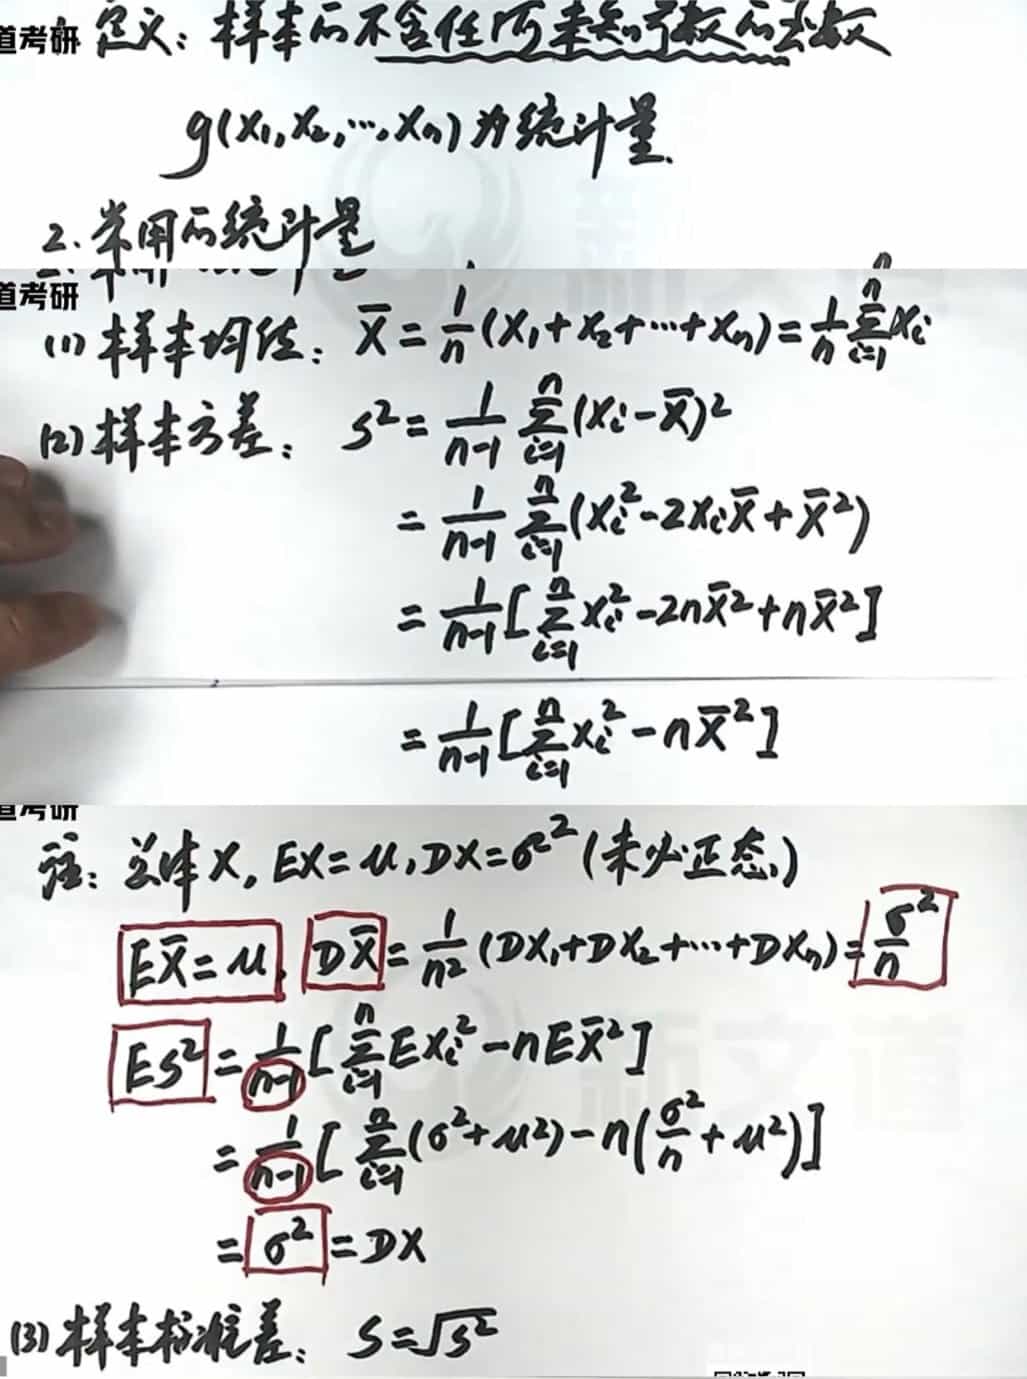 道考研 定义：样本的不含任何未知参数的函数
g(X₁,X₂,…,Xₙ)为统计量.
2. 常用的统计量
道考研
(1) 样本均值： X̄ = 1/n (X₁+X₂+…+Xₙ) = 1/n ∑ᵢ₌₁ⁿ Xᵢ
(2) 样本方差： S² = 1/(n-1) ∑ᵢ₌₁ⁿ (Xᵢ-X̄)²
= 1/(n-1) ∑ᵢ₌₁ⁿ (Xᵢ²-2XᵢX̄+X̄²)
= 1/(n-1) [∑ᵢ₌₁ⁿ Xᵢ²-2nX̄²+nX̄²]
= 1/(n-1) [∑ᵢ₌₁ⁿ Xᵢ²-nX̄²]
道考研
注：总体X, EX=μ, DX=σ² (未必正态)
EX̄=μ, DX̄ = 1/n² (DX₁+DX₂+…+DXₙ) = σ²/n
ES² = 1/(n-1) [∑ᵢ₌₁ⁿ EXᵢ²-nEX̄²]
= 1/(n-1) [∑ᵢ₌₁ⁿ (σ²+μ²)-n(σ²/n+μ²)]
= σ² = DX
(3) 样本标准差： S=√S²
新文道